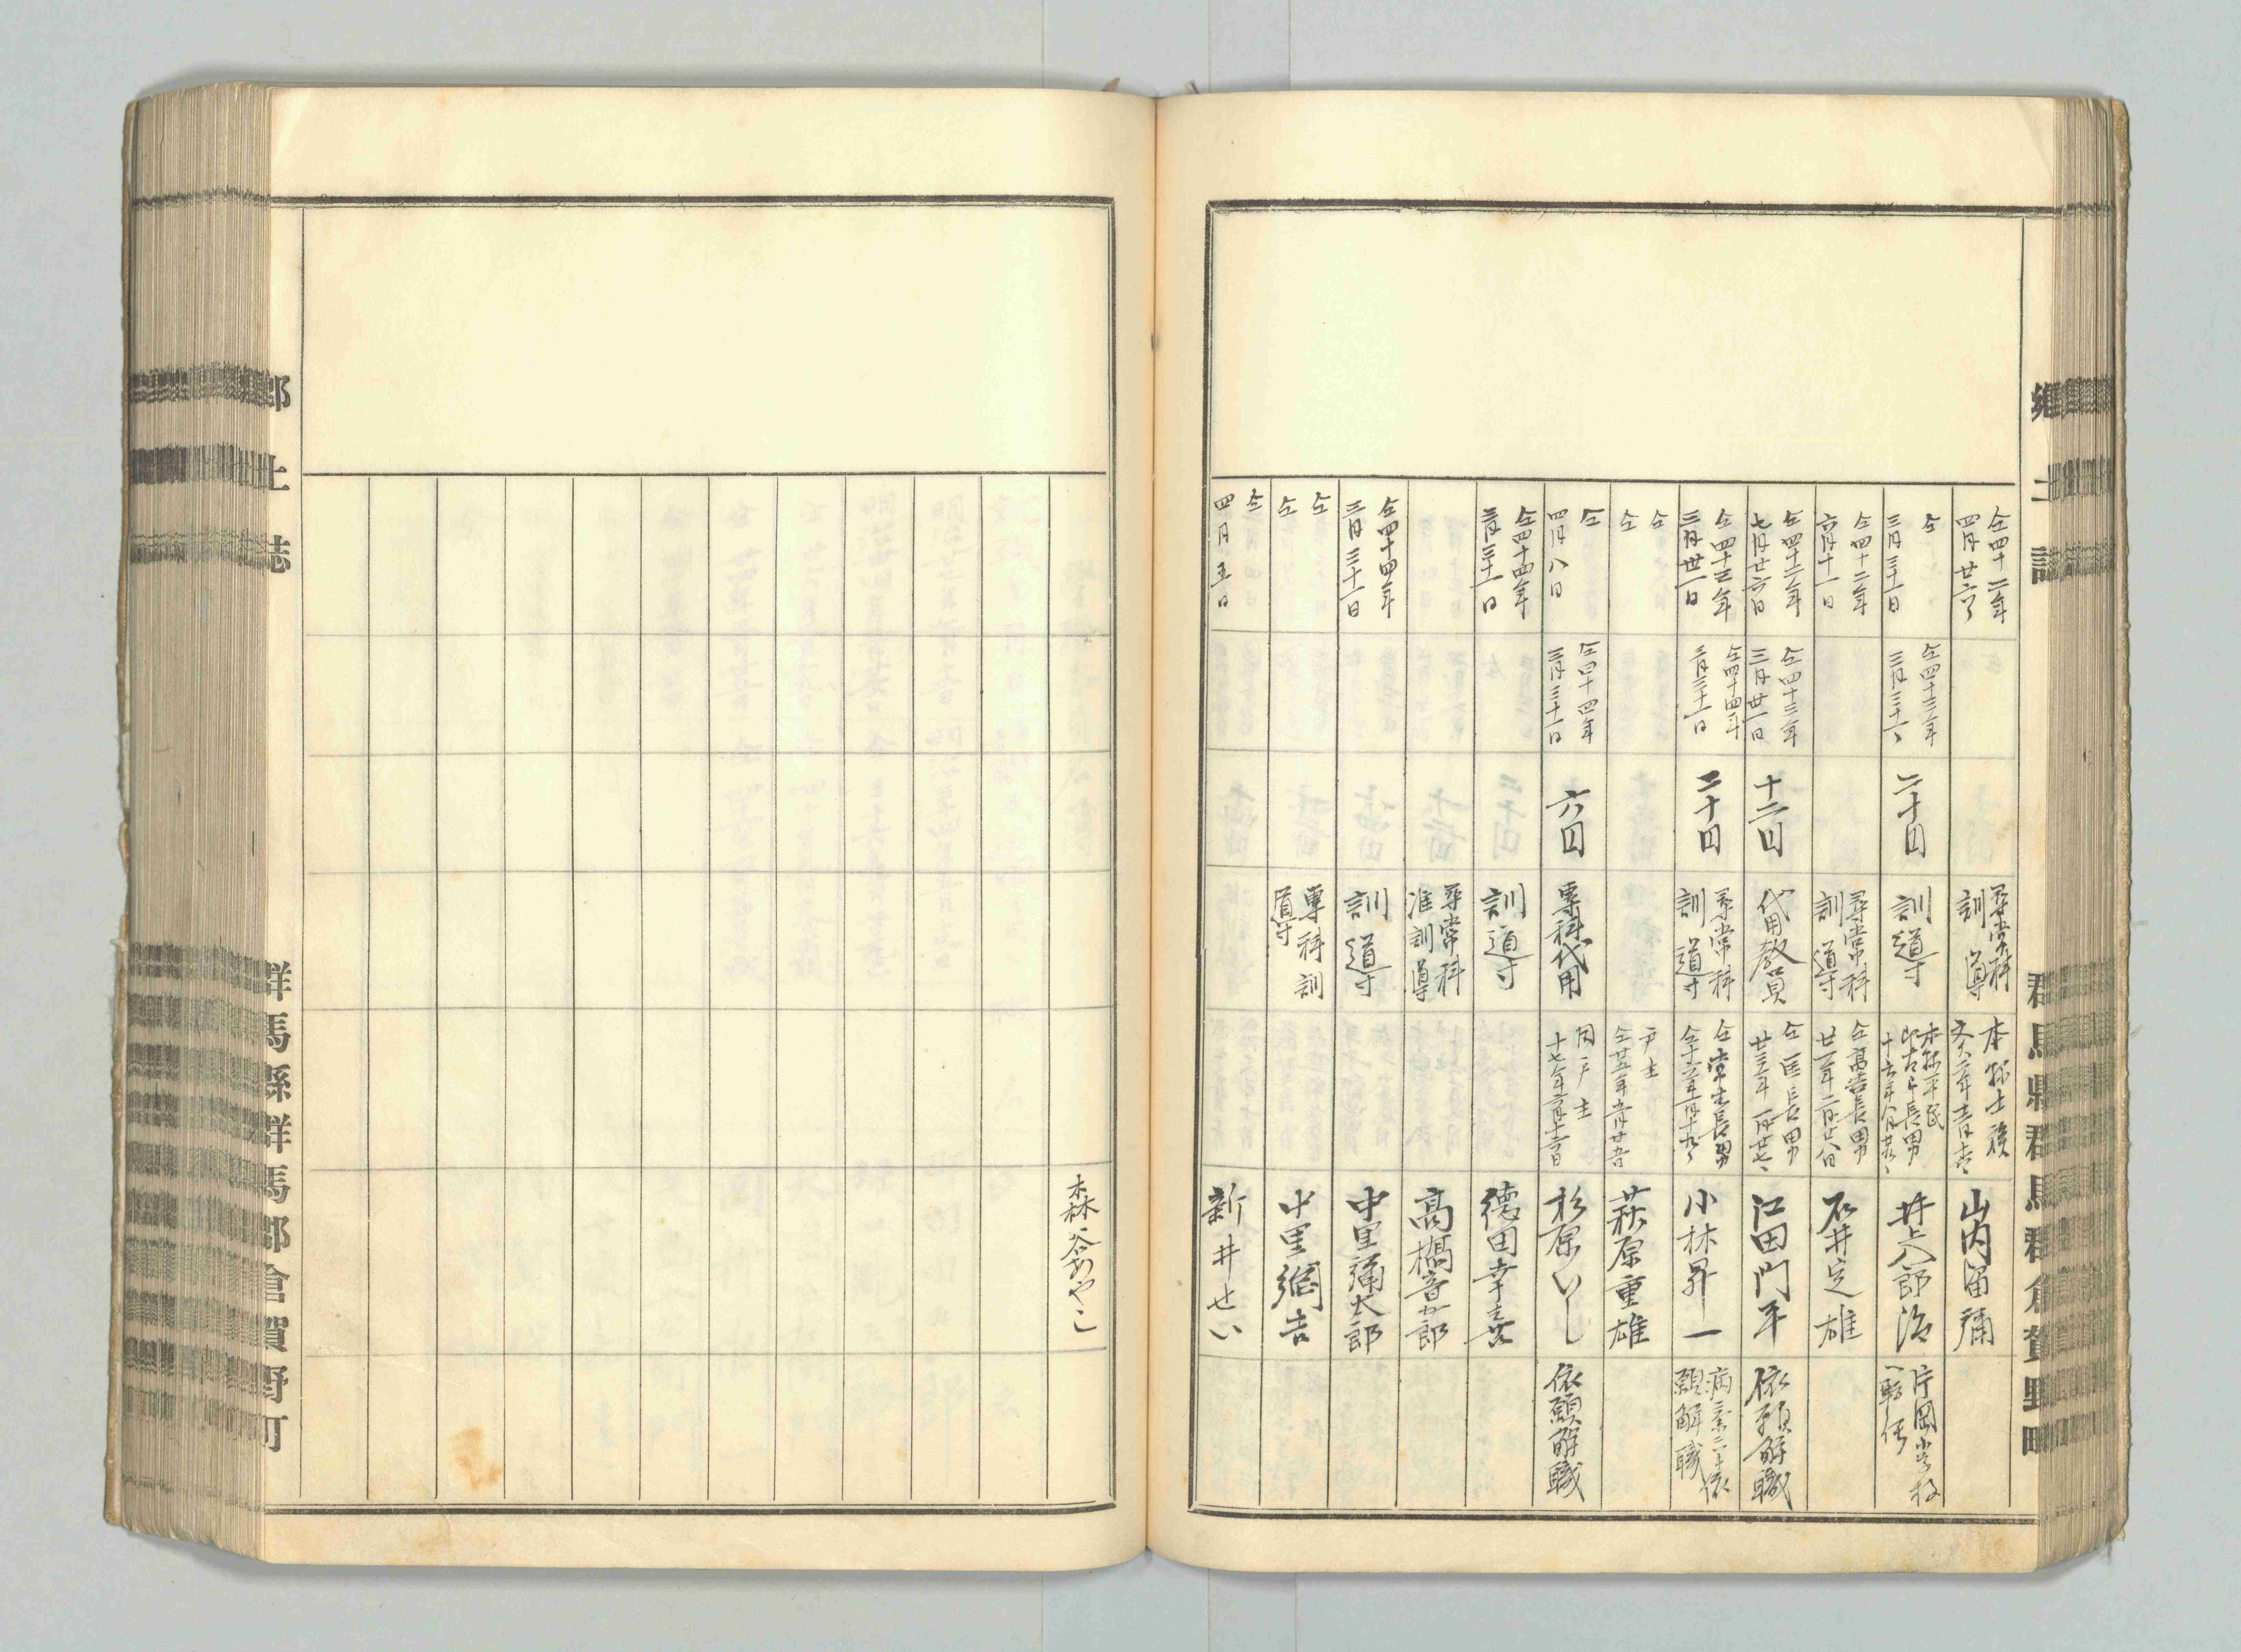 郷土誌
群馬縣群馬郡倉賀野町
仝四十二年
四月廿六
尋常科
訓導
本縣士族
山内留彌
仝
三月三十一日
仝四十三年
三月三十一
二十円
訓導
本縣平民
十六年八月
井上八郎治
片岡小学校
へ転任
仝四十二年
六月十一日
尋常科
訓導
仝
長男
廿一年二月廿八日
石井定雄
仝四十二年
七月廿六日
仝四十三年
三月廿一日
十二円
代用教員
仝
長男
江田門平
依願解職
仝四十三年
三月廿一日
仝四十四年
三月三十一日
二十円
尋常科
訓導
長男
小林昇一
病氣ニ付依
願解職
仝
仝
戸主
萩原重雄
仝
四月八日
仝四十四年
三月三十一日
六円
專科代用
戸主
杉原いし
依願解職
仝四十四年
三月三十一日
訓導
德田幸喜
尋常科
准訓導
高橋音五郎
仝四十四年
三月三十一日
訓導
中里彌太郎
仝
仝
專科訓
導
中里綱吉
仝
四月五日
新井せい
森谷あやこ
郷土誌
群馬縣群馬郡倉賀野町